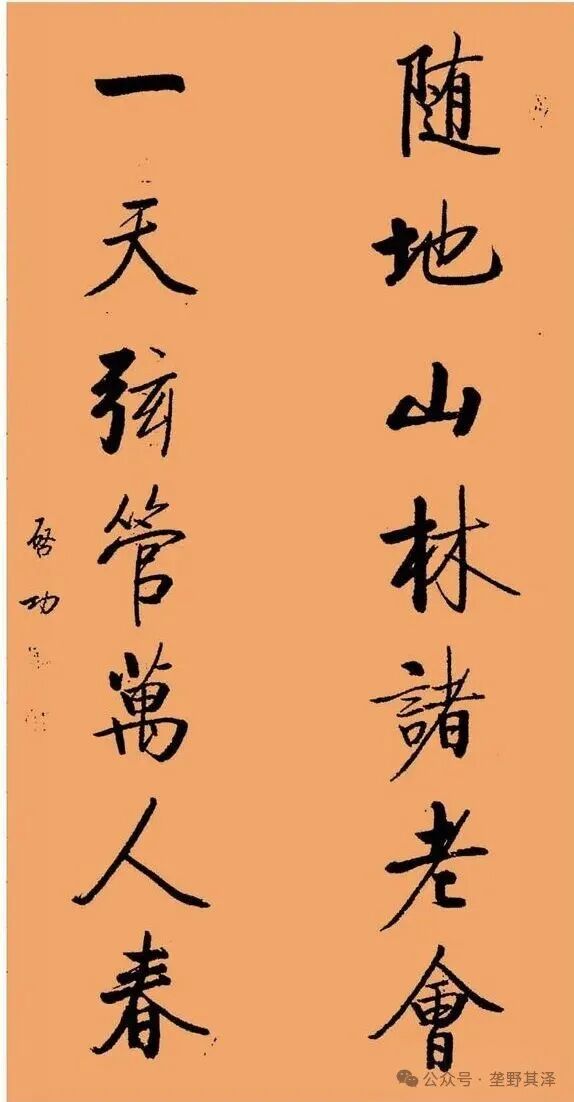 随地山林諸老會
一天弦管萬人春
啓功
公众号 · 垄野其泽